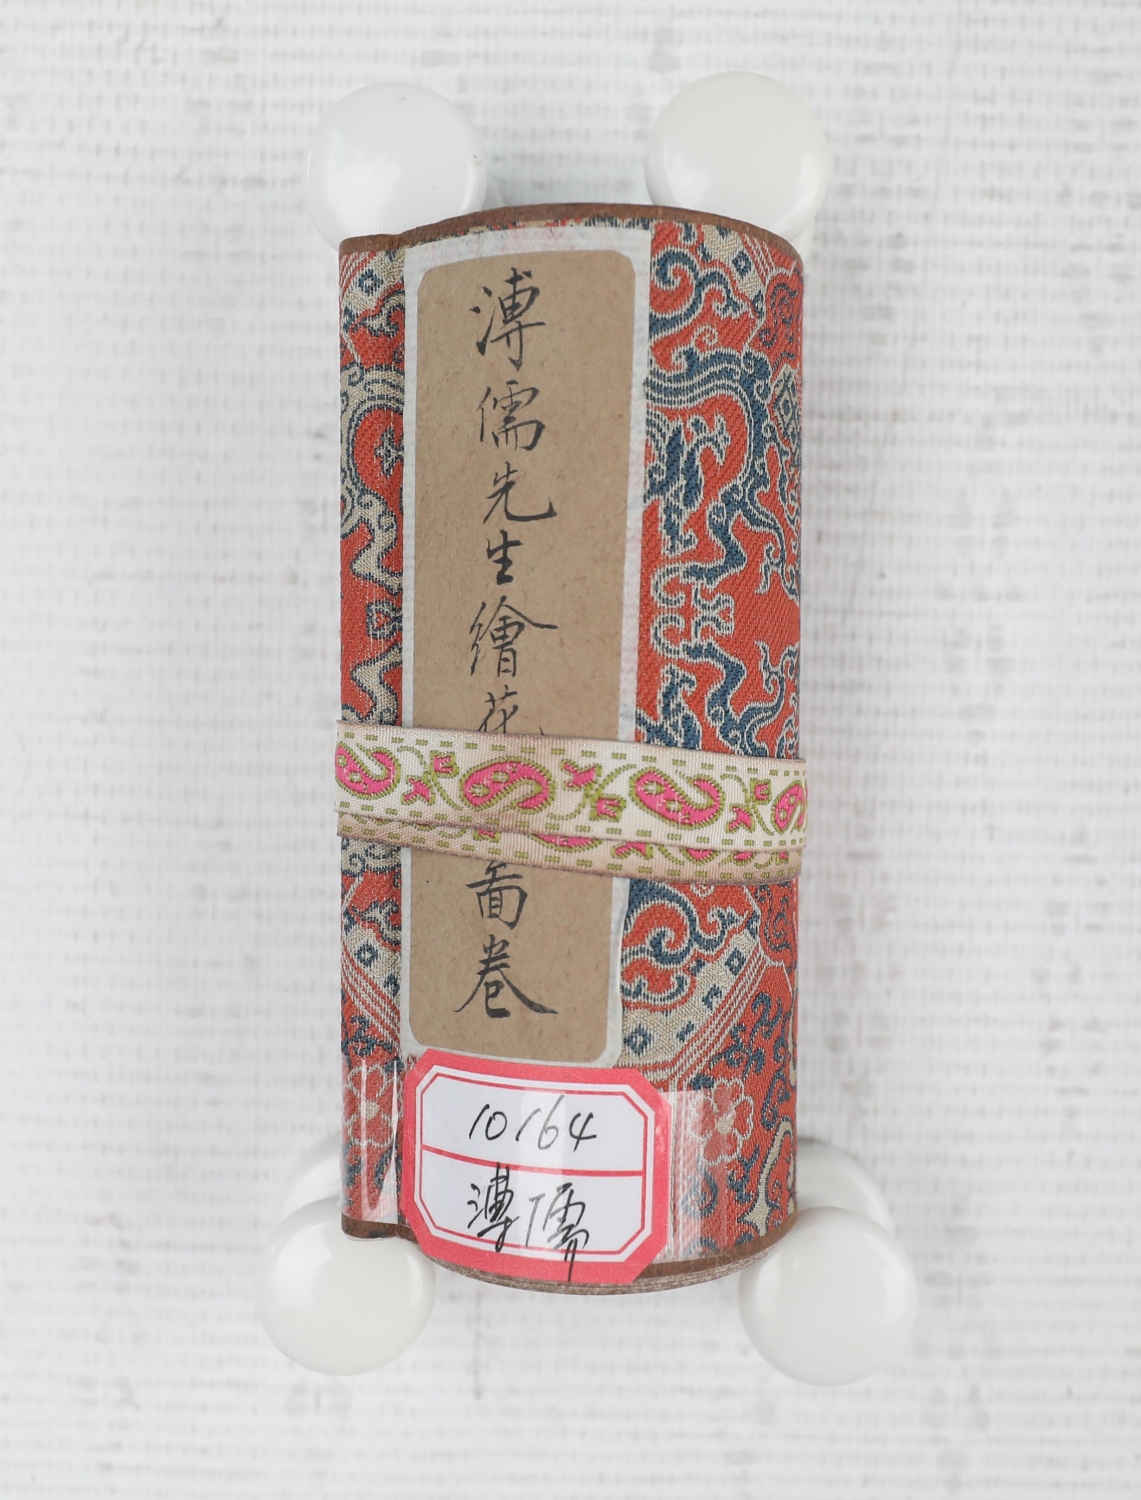 溥儒先生繪花啚卷
10164
溥儒